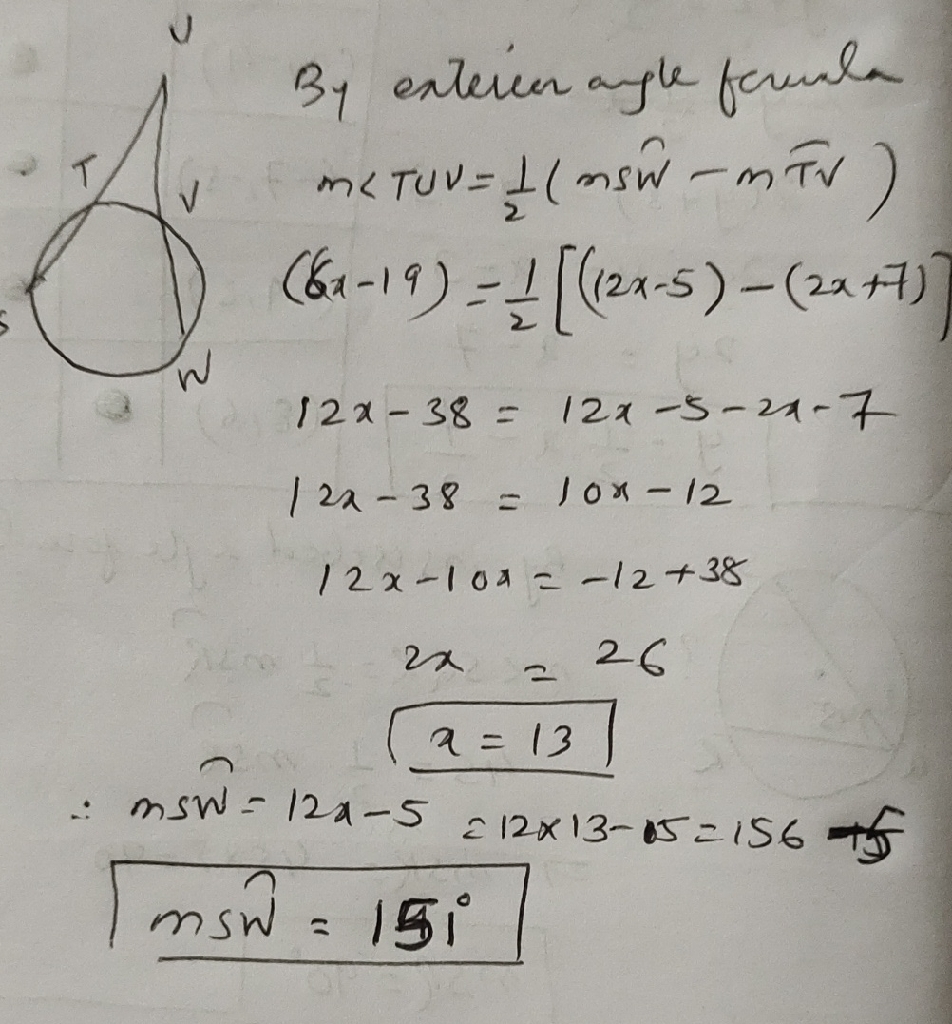 U
By exterior angle formula
T
V
m<TUV = 1/2 (m SW - m TV)
(6x-19) = 1/2 [(12x-5) - (2x+7)]
S
W
12x - 38 = 12x - 5 - 2x - 7
12x - 38 = 10x - 12
12x - 10x = -12 + 38
2x = 26
x = 13
∴ m SW = 12x - 5 = 12 x 13 - 5 = 156 - 5
m SW = 151°